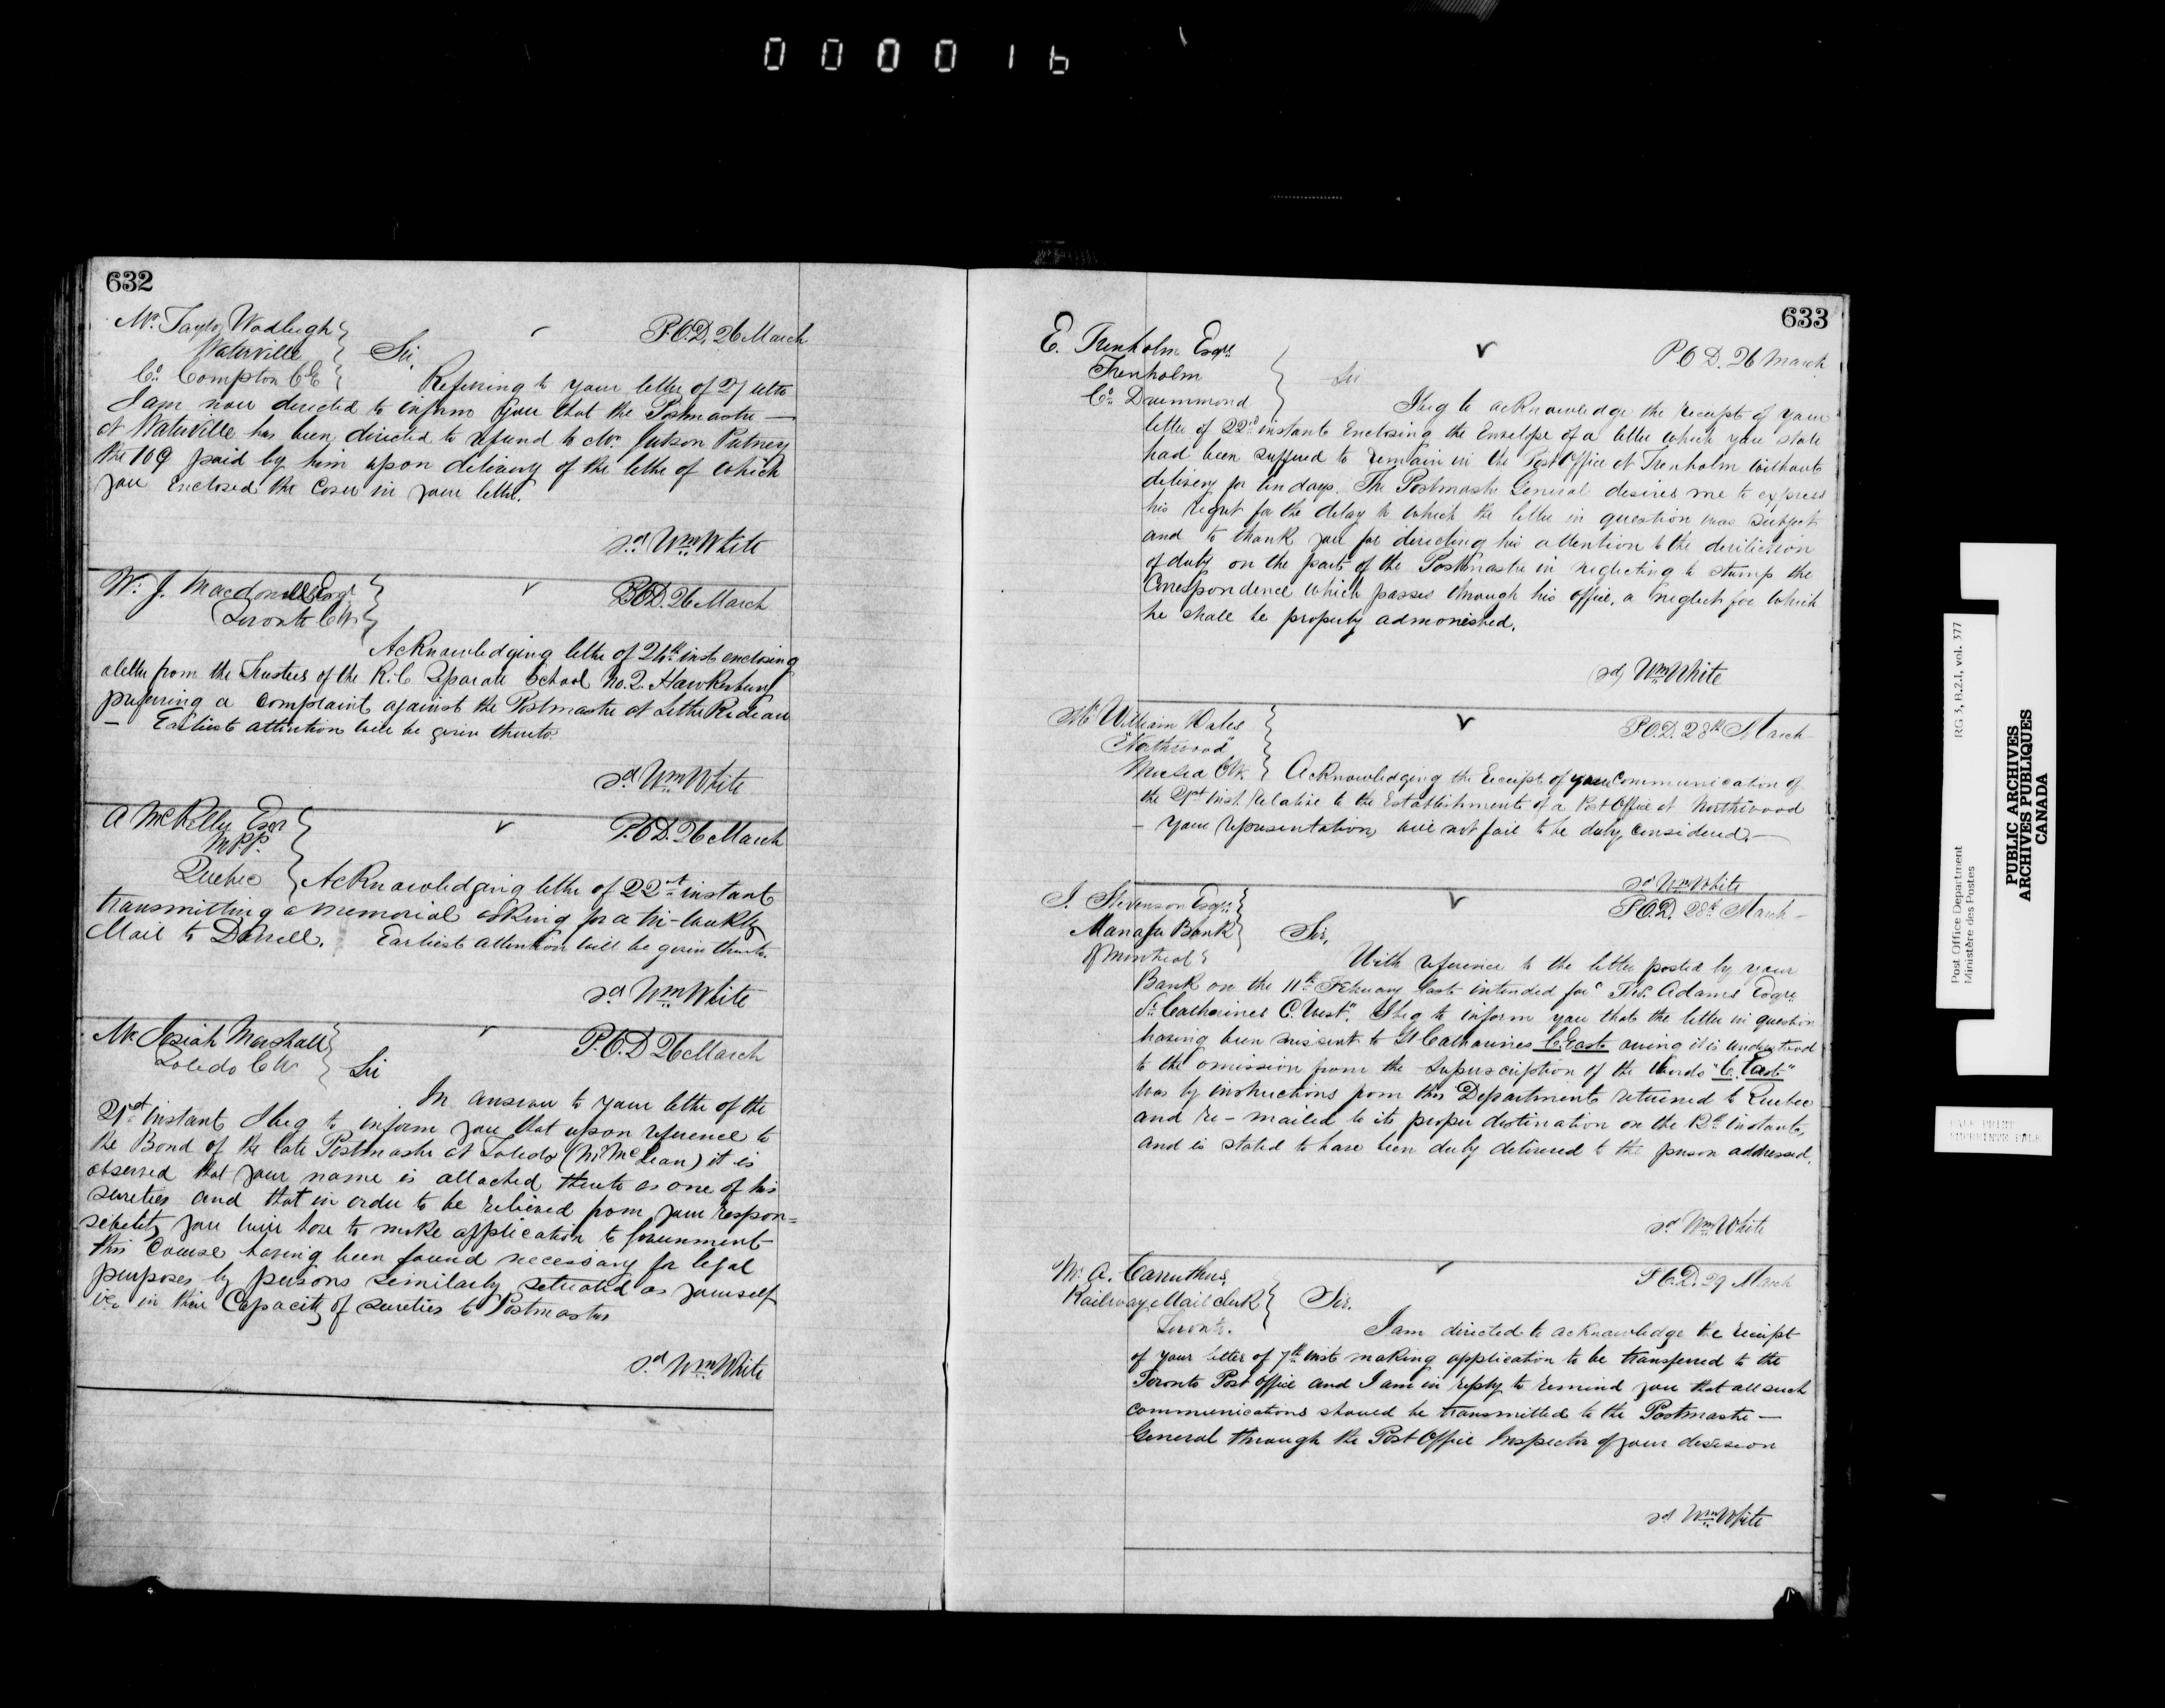 000016
632
Mr. Taylor Wadleigh
Waterville
Co. Compton C.E
P.O.D. 26 March
Sir,
Referring to your letter of 27 ulto
I am now directed to inform you that the Postmaster —
at Waterville has been directed to refund to Mr. Putney
the 109 paid by him upon delivery of the letter of which
you enclosed the cover in your letter.
sd Wm White
W. J. Macdonell Esqr
Toronto C.W.
P.O.D. 26 March
Acknowledging letter of 24th inst enclosing
a letter from the Trustees of the R.C Separate School No. 2. Hawkesbury
preferring a complaint against the Postmaster at Little Rideau
— Earliest attention will be given thereto.
sd Wm White
A McKelly Esqr
M.P.P.
Quebec
P.O.D. 26 March
Acknowledging letter of 22nd instant
transmitting a memorial asking for a tri-weekly
Mail to Darrell. Earliest attention will be given thereto.
sd Wm White
Mr Josiah Marshall
Toledo C.W.
P.O.D 26 March
Sir
In answer to your letter of the
21st instant I beg to inform you that upon reference to
the Bond of the late Postmaster at Toledo (Mr McLean) it is
observed that your name is attached thereto as one of his
sureties and that in order to be relieved from your respon=
sibility you will have to make application to Government
this Course having been found necessary for legal
purposes by persons similarly situated as yourself
in their Capacity of sureties to Postmasters
sd Wm White
633
E. Trenholm Esqre
Trenholm
Co. Drummond
P.O.D. 26 March
Sir
I beg to acknowledge the receipt of your
letter of 22nd instant Enclosing the Envelope of a letter which you state
had been suffered to remain in the Post Office at Trenholm without
delivery for ten days. The Postmaster General desires me to express
his regret for the delay to which the letter in question was subject
and to thank you for directing his attention to the dereliction
of duty on the part of the Postmaster in neglecting to stamp the
Correspondence which passes through his office, a neglect for which
he shall be properly admonished.
(sd) Wm White
Mr William Wales
"Northwood"
C.W.
P.O.D. 28th March
Acknowledging the Receipt of your Communication of
the 21st inst. relative to the Establishment of a Post Office at Northwood
— Your representations will not fail to be duly considered. —
sd Wm White
J. Stevenson Esqre
Manager Bank
of Montreal
P.O.D. 28th March —
Sir,
With reference to the letter posted by your
Bank on the 11th February last intended for "Thos. Adams Esqre
St. Catharines C. West". I beg to inform you that the letter in question
having been missent to St Catharines C. East owing it is understood
to the omission from the superscription of the words "C. East"
was by instructions from this Department returned to Quebec
and re-mailed to its proper destination on the 12th instant,
and is stated to have been duly delivered to the person addressed.
sd Wm White
Mr. A. Carruthers,
Railway Mail Clerk
Toronto.
P.O.D. 29 March
Sir.
I am directed to acknowledge the receipt
of your letter of 7th inst making application to be transferred to the
Toronto Post Office and I am in reply to remind you that all such
communications should be transmitted to the Postmaster —
General through the Post Office Inspector of your division
sd Wm White
Post Office Department
Ministère des Postes
RG 3, B.2.1, vol. 377
PUBLIC ARCHIVES
ARCHIVES PUBLIQUES
CANADA